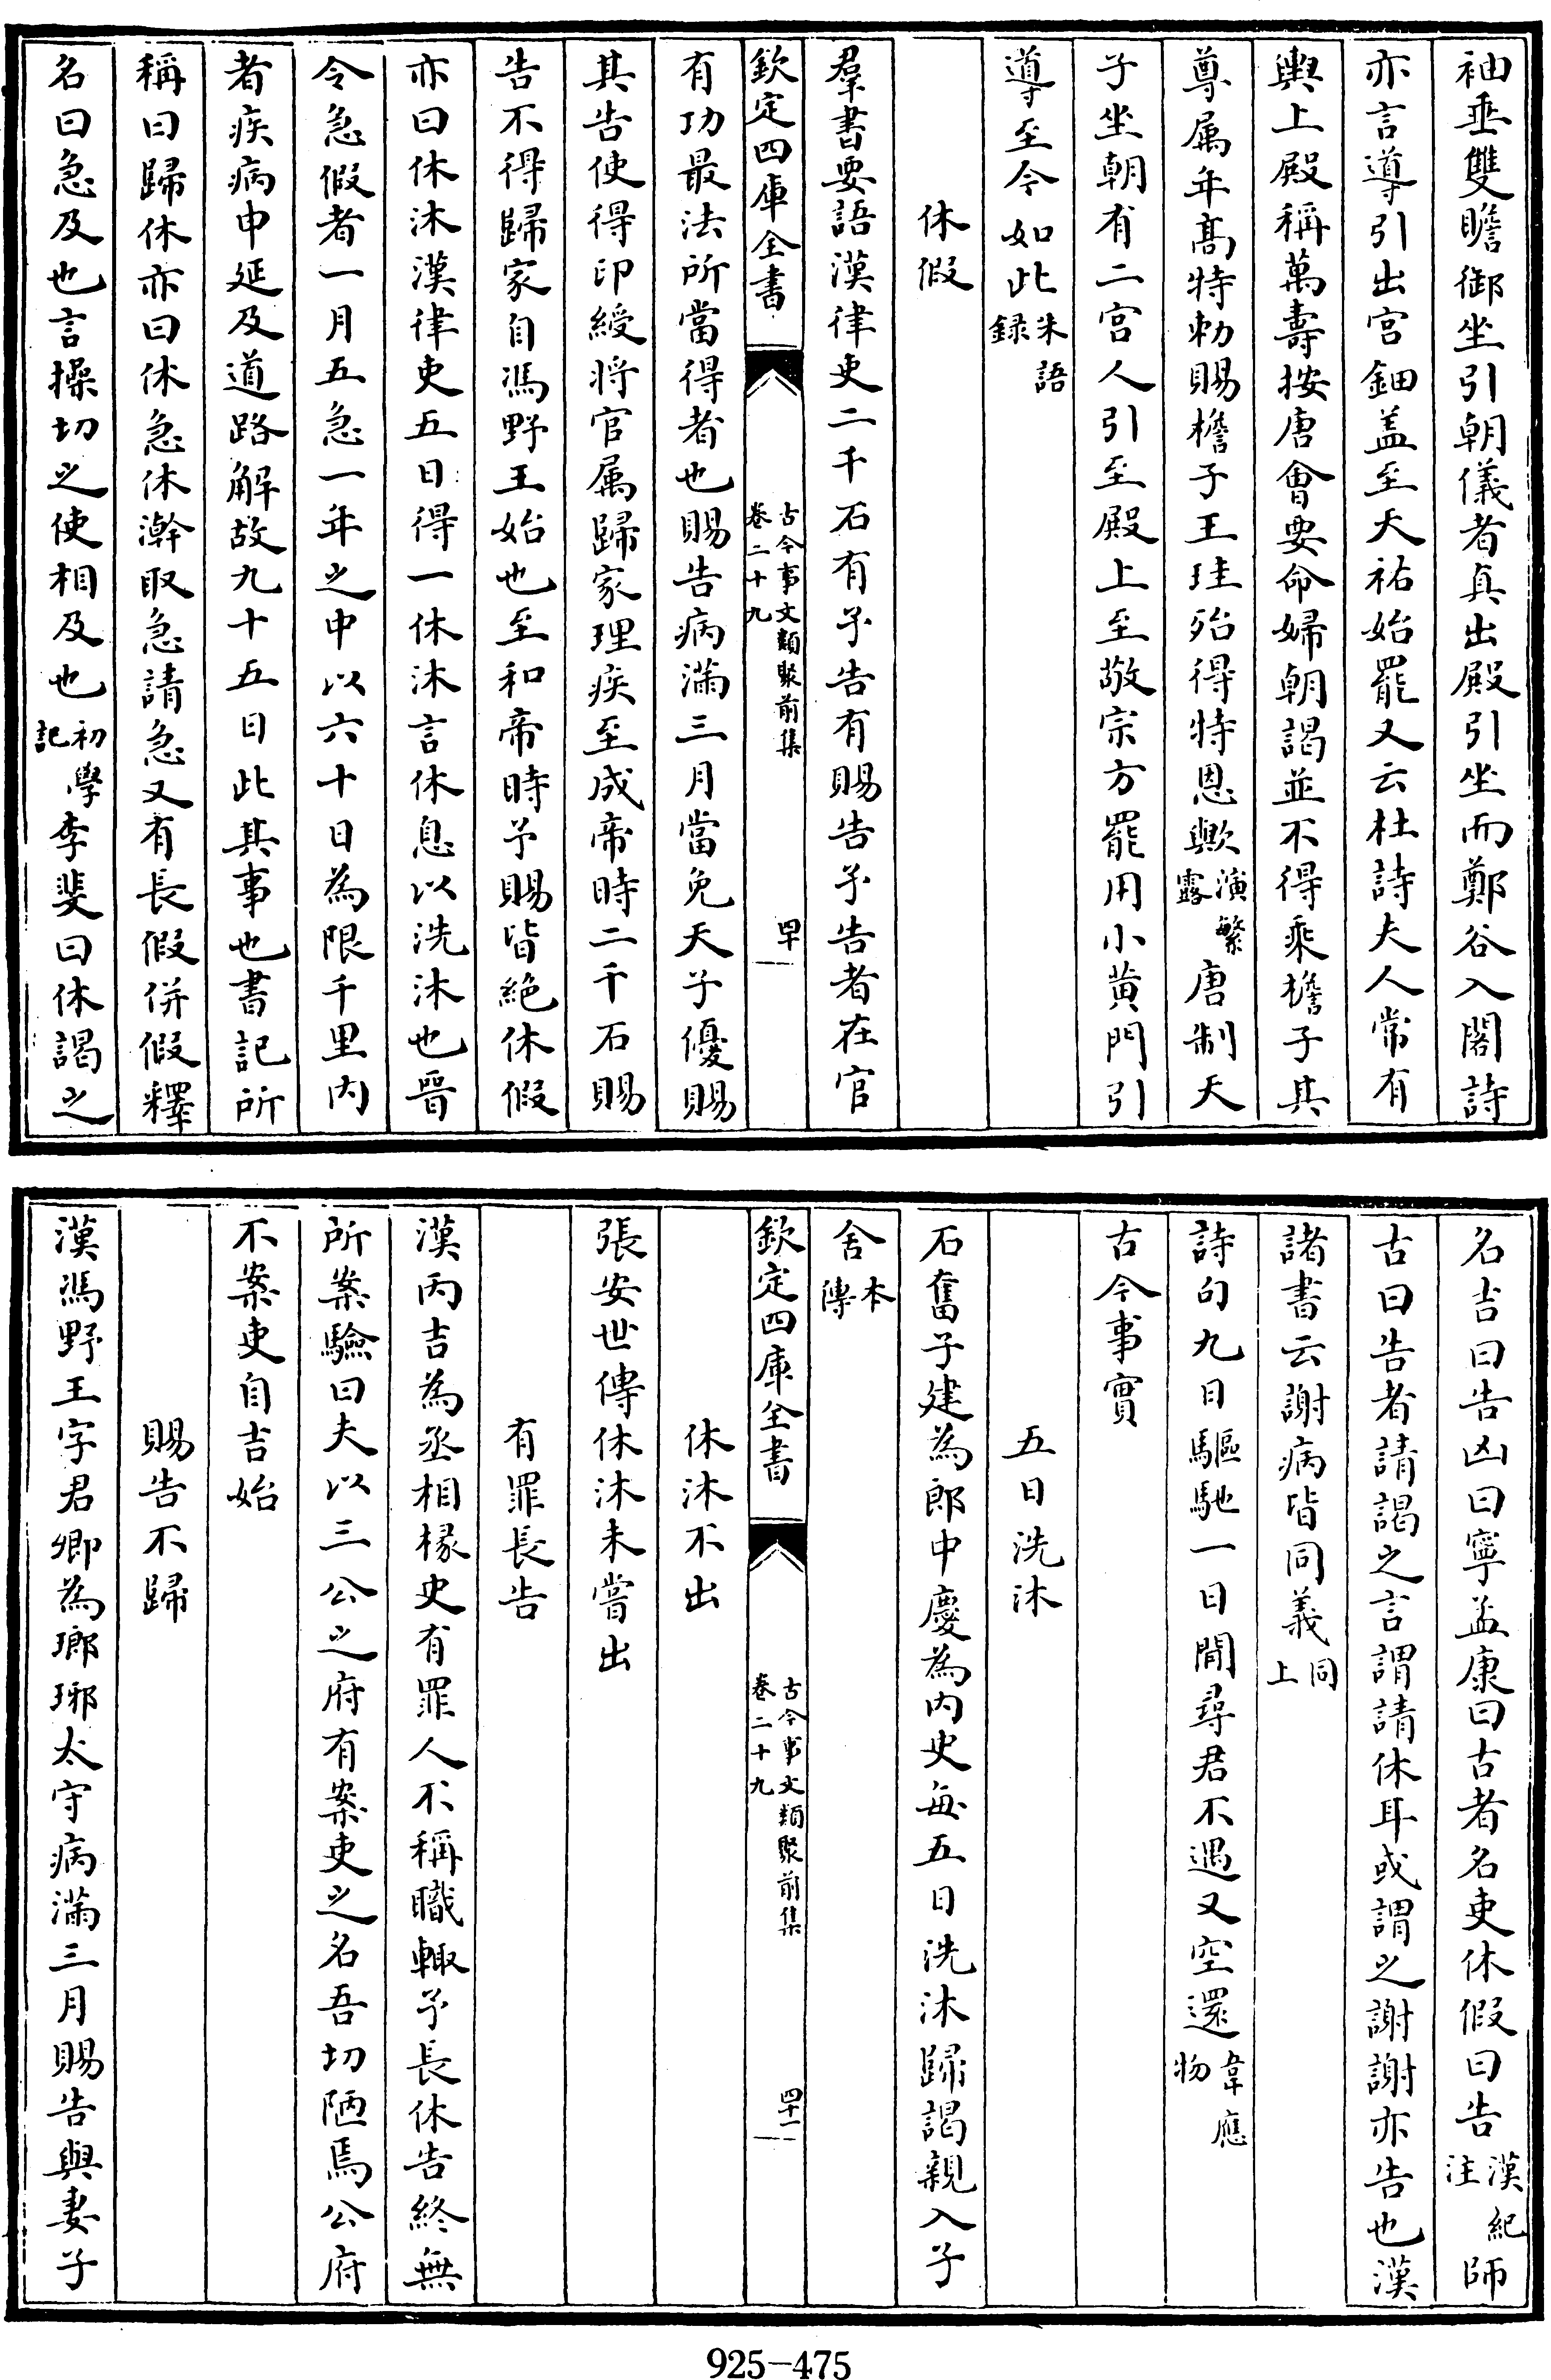 袖垂雙瞻御坐引朝儀者真出殿引坐而鄭谷入閣詩
亦言導引出宮鈿盖至天祐始罷又云杜詩夫人常有
輿上殿稱萬壽按唐會要命婦朝謁並不得乘檐子其
尊属年髙特勅賜檐子王珪殆得特恩歟演繁露唐制天
子坐朝有二宫人引至殿上至敬宗方罷用小黄門引
導至今如此朱語録
休假
羣書要語漢律吏二千石有予告有賜告予告者在官
欽定四庫全書
古今事文類聚前集
卷二十九
四十
有功最法所當得者也賜告病滿三月當免天子優賜
其告使得印綬將官属歸家理疾至成帝時二千石賜
告不得歸家自馮野王始也至和帝時予賜皆絶休假
亦曰休沐漢律吏五日得一休沐言休息以洗沐也晉
令急假者一月五急一年之中以六十日為限千里内
者疾病申延及道路解故九十五日此其事也書記所
稱曰歸休亦曰休急休澣取急請急又有長假併假釋
名曰急及也言操切之使相及也初學記李斐曰休謁之
名吉曰告凶曰寧孟康曰古者名吏休假曰告漢紀注師
古曰告者請謁之言謂請休耳或謂之謝謝亦告也漢
諸書云謝病皆同義同上
詩句九日驅馳一日閒尋君不遇又空還韋應物
古今事實
五日洗沐
石奮子建為郎中慶為内史每五日洗沐歸謁親入子
舍本傳
欽定四庫全書
古今事文類聚前集
卷二十九
四十一
休沐不出
張安世傳休沐未嘗出
有罪長告
漢丙吉為丞相椽史有罪人不稱職輙予長休告終無
所案驗曰夫以三公之府有案吏之名吾切陋焉公府
不案吏自吉始
賜告不歸
漢馮野王字君卿為瑯琊太守病滿三月賜告與妻子
925-475